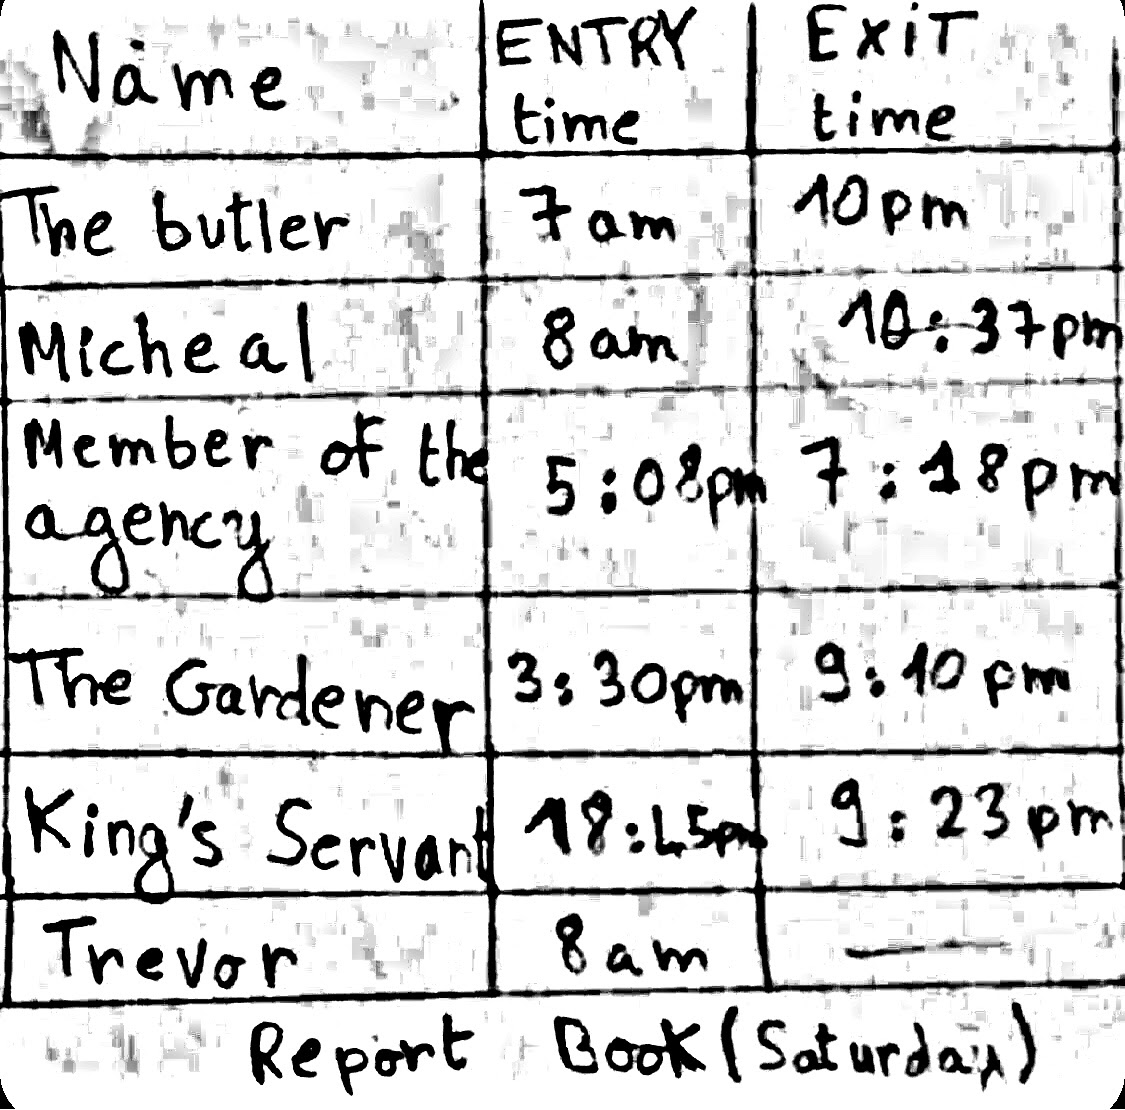 Name ENTRY time EXiT time
The butler 7 am 10pm
Micheal 8 am 10:37pm
Member of the agency 5:08pm 7:18pm
The Gardener 3:30pm 9:10 pm
King's Servant 18:45pm 9:23 pm
Trevor 8 am —
Report Book (Saturday)